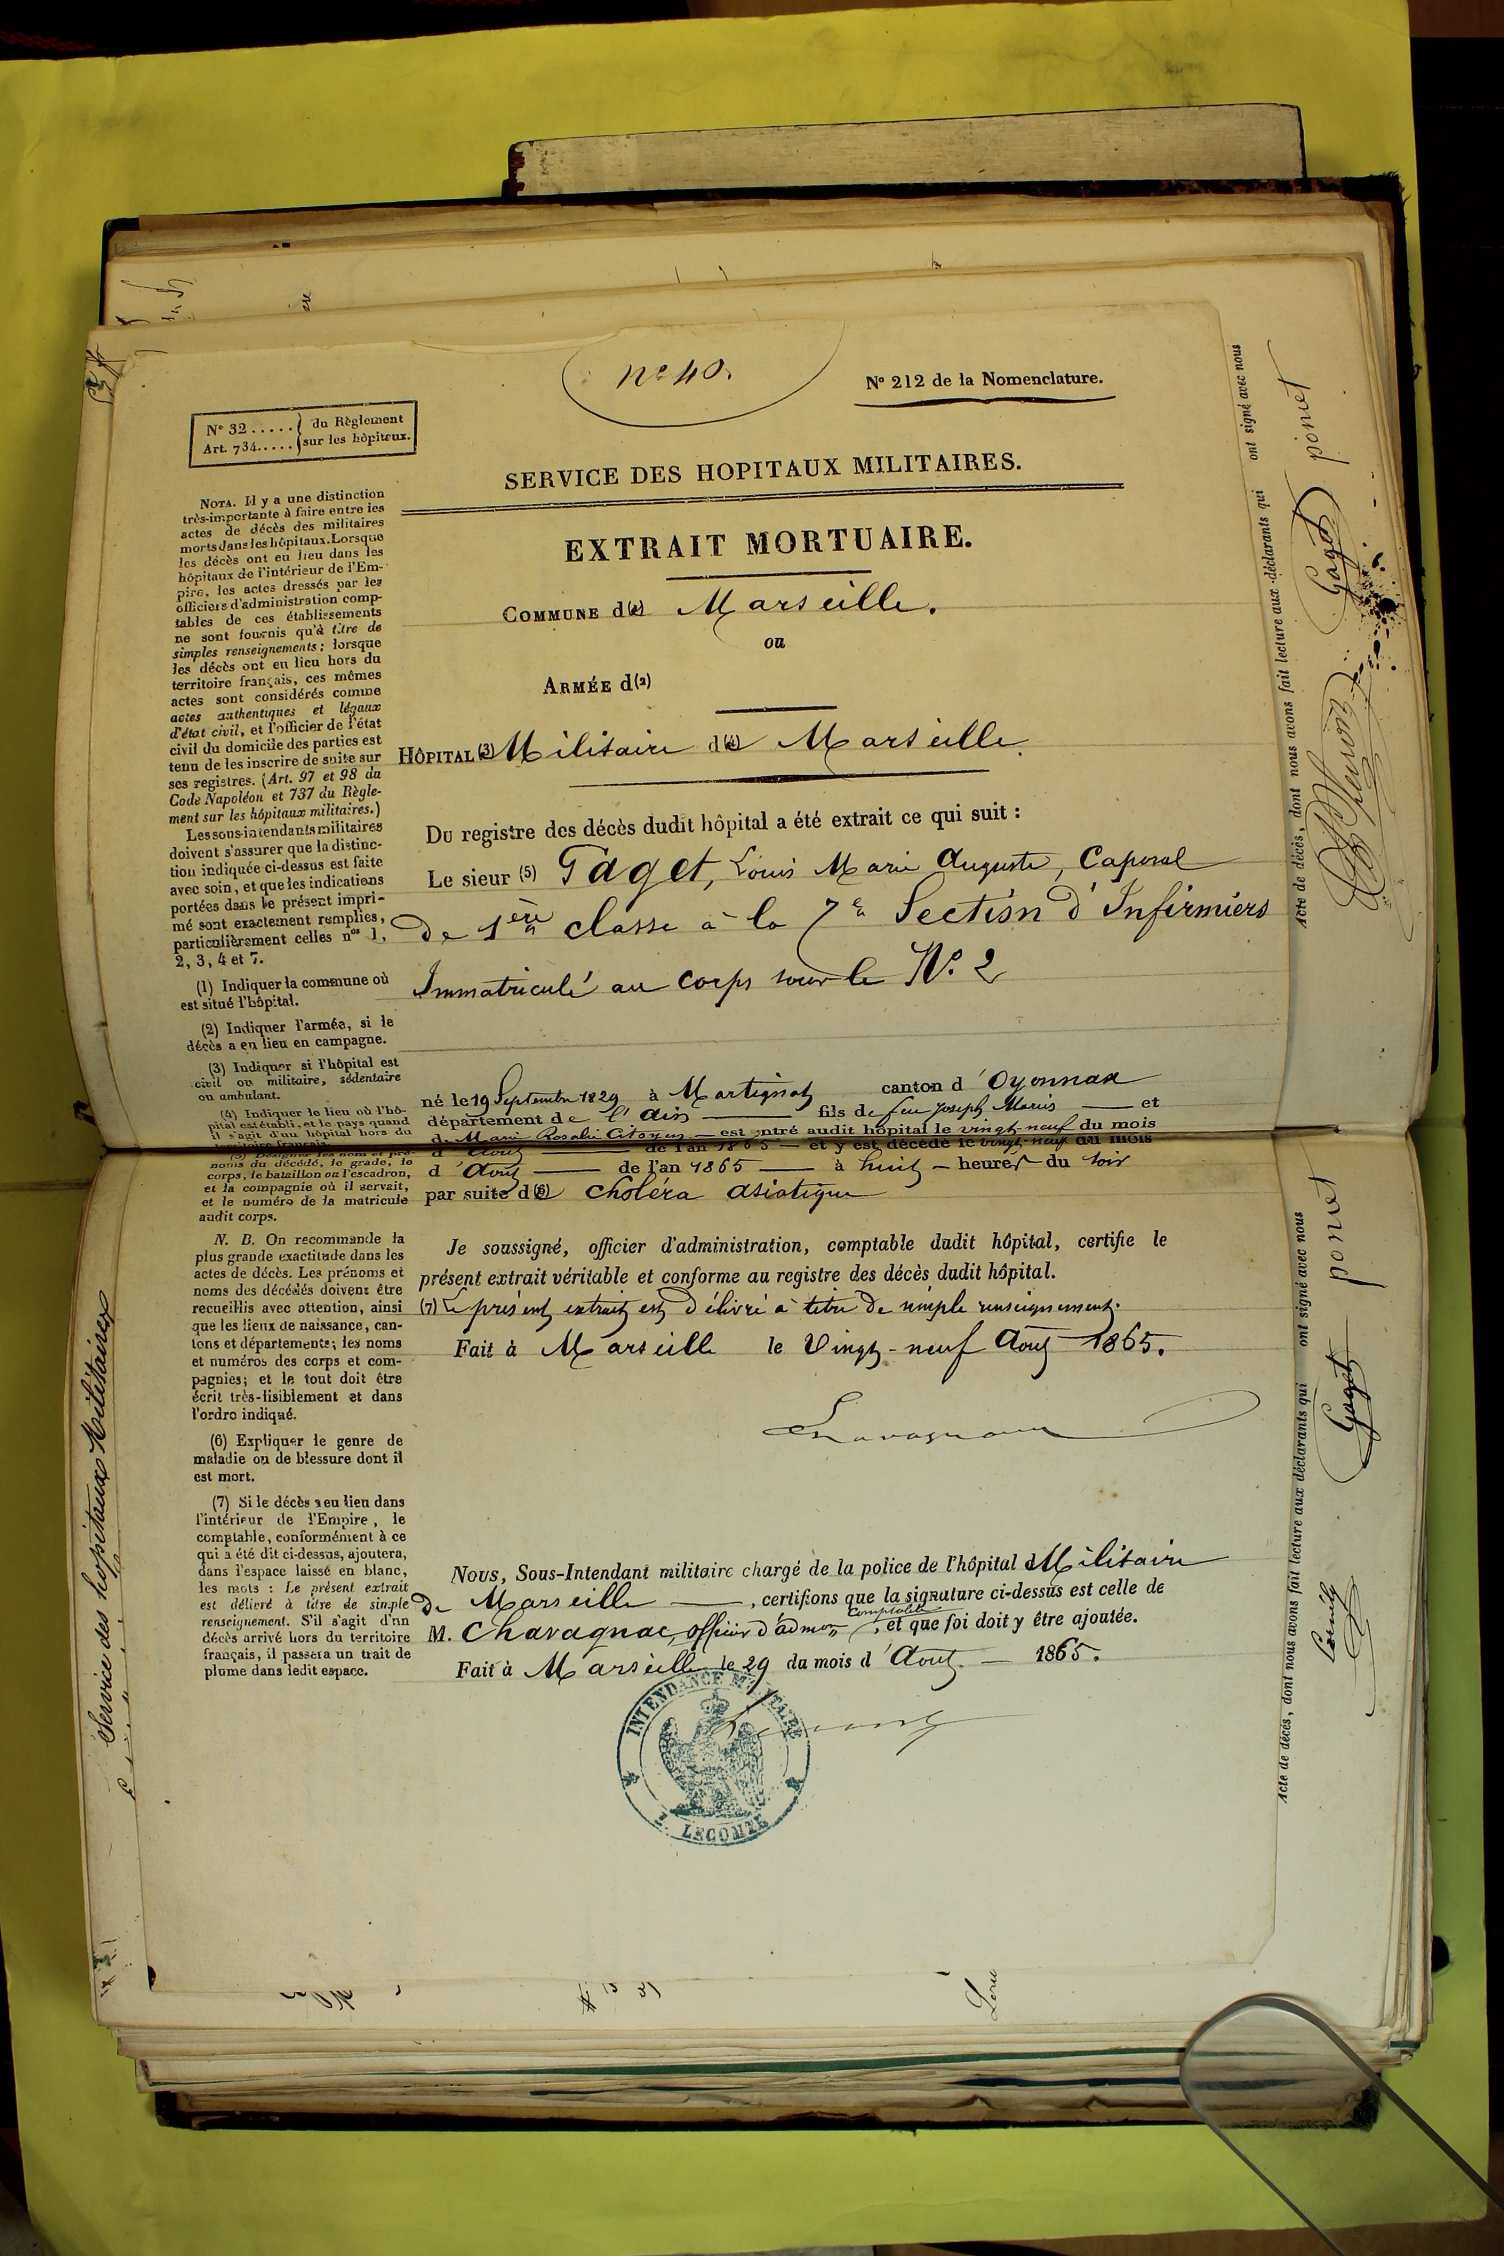 nº 40.
Nº 212 de la Nomenclature.
Nº 32..... du Règlement
Art. 734..... sur les hôpitaux.
SERVICE DES HOPITAUX MILITAIRES.
EXTRAIT MORTUAIRE.
COMMUNE d(1)e Marseille.
ou
ARMÉE d(2)
HÔPITAL (3) Militaire d(4)e Marseille.
Du registre des décès dudit hôpital a été extrait ce qui suit :
Le sieur (5) Gaget, Louis Marie Auguste, Caporal
de 1ère classe à la 7e Section d'Infirmiers
Immatriculé au corps sous le Nº. 2
né le 19 Septembre 1829 à Martignat canton d'Oyonnax
département de l'Ain fils de feu Joseph Marie et
de Marie Rosalie Citoyen est entré audit hôpital le vingt-neuf du mois
d'Août de l'an 1865 et y est décédé le vingt-neuf du mois
d'Août de l'an 1865 à huit heures du soir
par suite d(6)e Choléra asiatique
Je soussigné, officier d'administration, comptable dudit hôpital, certifie le
présent extrait véritable et conforme au registre des décès dudit hôpital.
(7) Le présent extrait est délivré à titre de simple renseignement.
Fait à Marseille le Vingt-neuf Août 1865.
Chavagnac
Nous, Sous-Intendant militaire chargé de la police de l'hôpital Militaire
de Marseille, certifions que la signature ci-dessus est celle de
M. Chavagnac, officier d'admon comptable, et que foi doit y être ajoutée.
Fait à Marseille le 29 du mois d'Août 1865.
INTENDANCE MILITAIRE
LECOMTE
NOTA. Il y a une distinction
très-importante à faire entre les
actes de décès des militaires
morts dans les hôpitaux. Lorsque
les décès ont eu lieu dans les
hôpitaux de l'intérieur de l'Em-
pire, les actes dressés par les
officiers d'administration comp-
tables de ces établissements
ne sont fournis qu'à titre de
simples renseignements; lorsque
les décès ont eu lieu hors du
territoire français, ces mêmes
actes sont considérés comme
actes authentiques et légaux
d'état civil, et l'officier de l'état
civil du domicile des parties est
tenu de les inscrire de suite sur
ses registres. (Art. 97 et 98 du
Code Napoléon et 737 du Règle-
ment sur les hôpitaux militaires.)
Les sous-intendants militaires
doivent s'assurer que la distinc-
tion indiquée ci-dessus est faite
avec soin, et que les indications
portées dans le présent impri-
mé sont exactement remplies,
particulièrement celles nos 1,
2, 3, 4 et 7.
(1) Indiquer la commune où
est situé l'hôpital.
(2) Indiquer l'armée, si le
décès a eu lieu en campagne.
(3) Indiquer si l'hôpital est
civil ou militaire, sédentaire
ou ambulant.
(4) Indiquer le lieu où l'hô-
pital est établi, et le pays quand
il s'agit d'un hôpital hors du
territoire français.
(5) Désigner les nom et pré-
noms du décédé, le grade, le
corps, le bataillon ou l'escadron,
et la compagnie où il servait,
et le numéro de la matricule
audit corps.
N. B. On recommande la
plus grande exactitude dans les
actes de décès. Les prénoms et
noms des décédés doivent être
recueillis avec attention, ainsi
que les lieux de naissance, can-
tons et départements; les noms
et numéros des corps et com-
pagnies; et le tout doit être
écrit très-lisiblement et dans
l'ordre indiqué.
(6) Expliquer le genre de
maladie ou de blessure dont il
est mort.
(7) Si le décès a eu lieu dans
l'intérieur de l'Empire, le
comptable, conformément à ce
qui a été dit ci-dessus, ajoutera,
dans l'espace laissé en blanc,
les mots : Le présent extrait
est délivré à titre de simple
renseignement. S'il s'agit d'un
décès arrivé hors du territoire
français, il passera un trait de
plume dans ledit espace.
Service des hopitaux Militaires
Acte de décès, dont nous avons fait lecture aux déclarants qui ont signé avec nous
Gaget ponet
Acte de décès, dont nous avons fait lecture aux déclarants qui ont signé avec nous
Gaget ponet